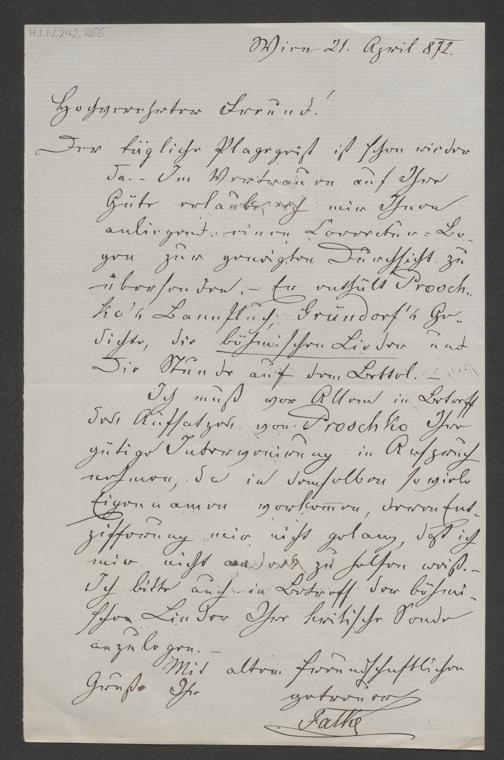 H.I.N. 242.255
Wien 21. April 872.
Hochverehrter Freund!
Der tägliche Plagegeist ist schon wieder
da. – Im Vertrauen auf Ihre
Güte erlaube ich mir Ihnen
anliegend einen Correctur-Bo-
gen zur geneigten Durchsicht zu
übersenden. – Er enthält Prosch-
ko's Bannfluch, Gründorf's Ge-
dichte, die böhmischen Lieder und
Die Stunde auf dem Bettel. –
Ich muß vor Allem in Betreff
des Aufsatzes von Proschko Ihre
gütige Intervenirung in Anspruch
nehmen, da in demselben so viele
Eigennamen vorkom̅en, deren Ent-
zifferung mir nicht gelang, daß ich
mir nicht anders zu helfen weiß. –
Ich bitte auch in Betreff der böhmi-
schen Lieder Ihre kritische Sonde
anzulegen. –
Mit altem freundschaftlichen
Gruße Ihr getreuer
Falke